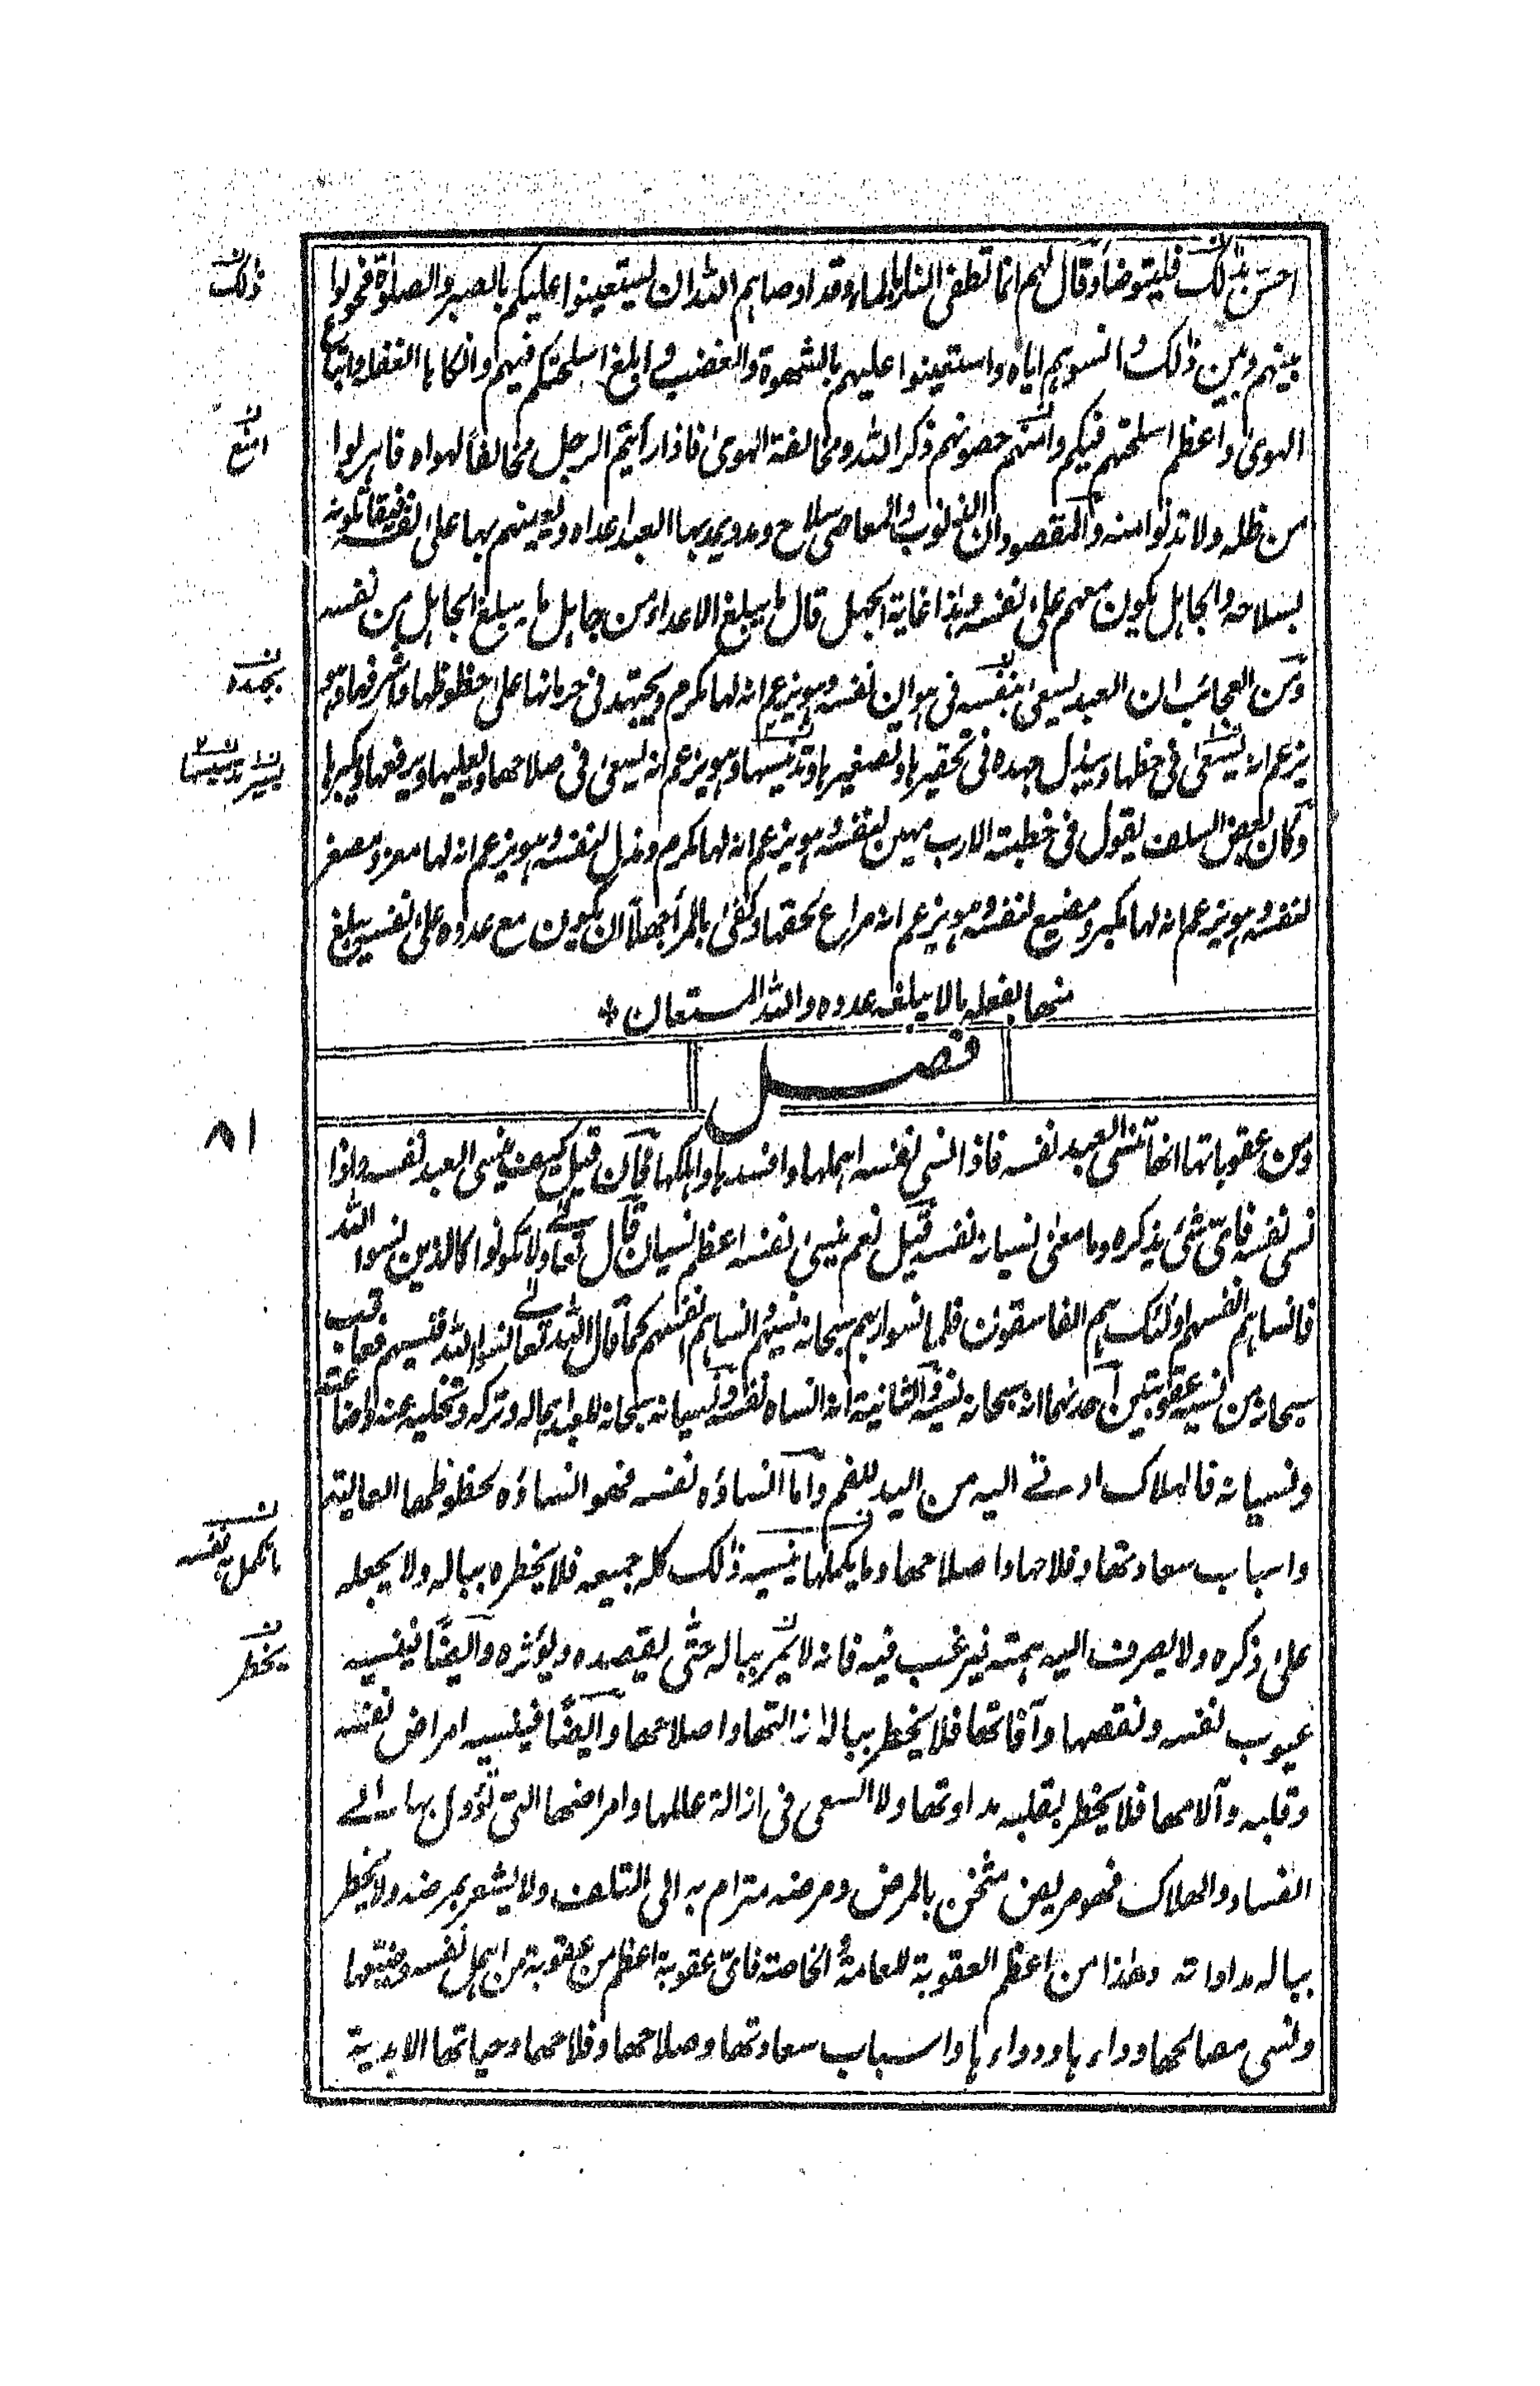 احسن بذلك فليتوضأ وقال لهم انما تطفى النار بالماء وقد اوصاهم الله ان يستعينوا عليكم بالصبر والصلوة فحولوا
بينهم وبين ذلك وانسوهم اياه واستعينوا عليهم بالشهوة والغضب وابلغ اسلحتكم فيهم وانكاها الغفلة واتباع
الهوى واعظم اسلحتهم فيكم وامنهم حصونهم ذكر الله ومخالفة الهوى فاذا رأيتم الرجل مخالفا لهواه فاهربوا
من ظله ولا تدنوا منه والمقصود ان الذنوب والمعاصى سلاح ومدد يمد بها العبد اعداه ويعينهم بها على نفسه فيقاتلونه
بسلاحه والجاهل يكون معهم على نفسه وهذا غاية الجهل قال ما يبلغ الاعداء من جاهل ما يبلغ الجاهل من نفسه
ومن العجائب ان العبد يسعى بنفسه فى هوان نفسه وهو يزعم انه لها مكرم ويجتهد فى حرمانها على حظوظها واشرفها وهو
يزعم انه يسعى فى حظها ويبذل جهده فى تحقيرها وتصغيرها وتدنيسها وهو يزعم انه يسعى فى صلاحها ويعليها ويرفعها ويكبرها
وكان بعض السلف يقول فى خطبته الا رب مهين لنفسه وهو يزعم انه لها مكرم ومذل لنفسه وهو يزعم انه لها معز ومصغر
لنفسه وهو يزعم انه لها مكبر ومضيع لنفسه وهو يزعم انه مراع لحقها وكفى بالمرأ جهلا ان يكون مع عدوه على نفسه يبلغ
منها بفعله ما لا يبلغه عدوه والله المستعان
فصل
ومن عقوباتها انها تنسى العبد نفسه فاذا نسى نفسه اهملها وافسدها واهلكها فان قيل كيف ينسى العبد نفسه واذا
نسى نفسه فاى شئ يذكره وما معنى نسيانه نفسه قيل نعم ينسى نفسه اعظم نسيان قال تعالى ولا تكونوا كالذين نسوا الله
فانساهم انفسهم اولئك هم الفاسقون فلما نسوا ربهم سبحانه نسيهم وانساهم انفسهم كما قال الله تعالى نسوا الله فنسيهم فعاقب
سبحانه من نسيه عقوبتين احدهما انه سبحانه نسيه والثانية انه انساه نفسه ونسيانه سبحانه للعبد اهماله وتركه وتخليه عنه واضاعته
ونسيانه فالهلاك ادنى اليه من اليد للفم واما انساؤه نفسه فهو انساؤه لحظوظها العالية
واسباب سعادتها وفلاحها واصلاحها وما يكملها ينسيه ذلك كله جميعه فلا يخطره بباله ولا يجعله
على ذكره ولا يصرف اليه همته فيرغب فيه فانه لا يمر بباله حتى يقصده ويؤثره وايضًا فينسيه
عيوب نفسه ونقصها وآفاتها فلا يخطر بباله ازالتها واصلاحها وايضًا فينسيه امراض نفسه
وقلبه وآلامها فلا يخطر بقلبه مداوتها ولا السعى فى ازالة عللها وامراضها التى تؤول بها الى
الفساد والهلاك فهو مريض مثخن بالمرض ومرضه مترام به الى التلف ولا يشعر بمرضه ولا يخطر
بباله مداواته وهذا من اعظم العقوبة للعامة والخاصة فاى عقوبة اعظم من عقوبة من اهمل نفسه وضيعها
ونسى مصالحها وداءها ودواءها واسباب سعادتها وصلاحها وفلاحها وحياتها الابدية
ذلك
امنع
بجهده
تدسيتها
٨١
ما تكمل به نفسه
يخطر